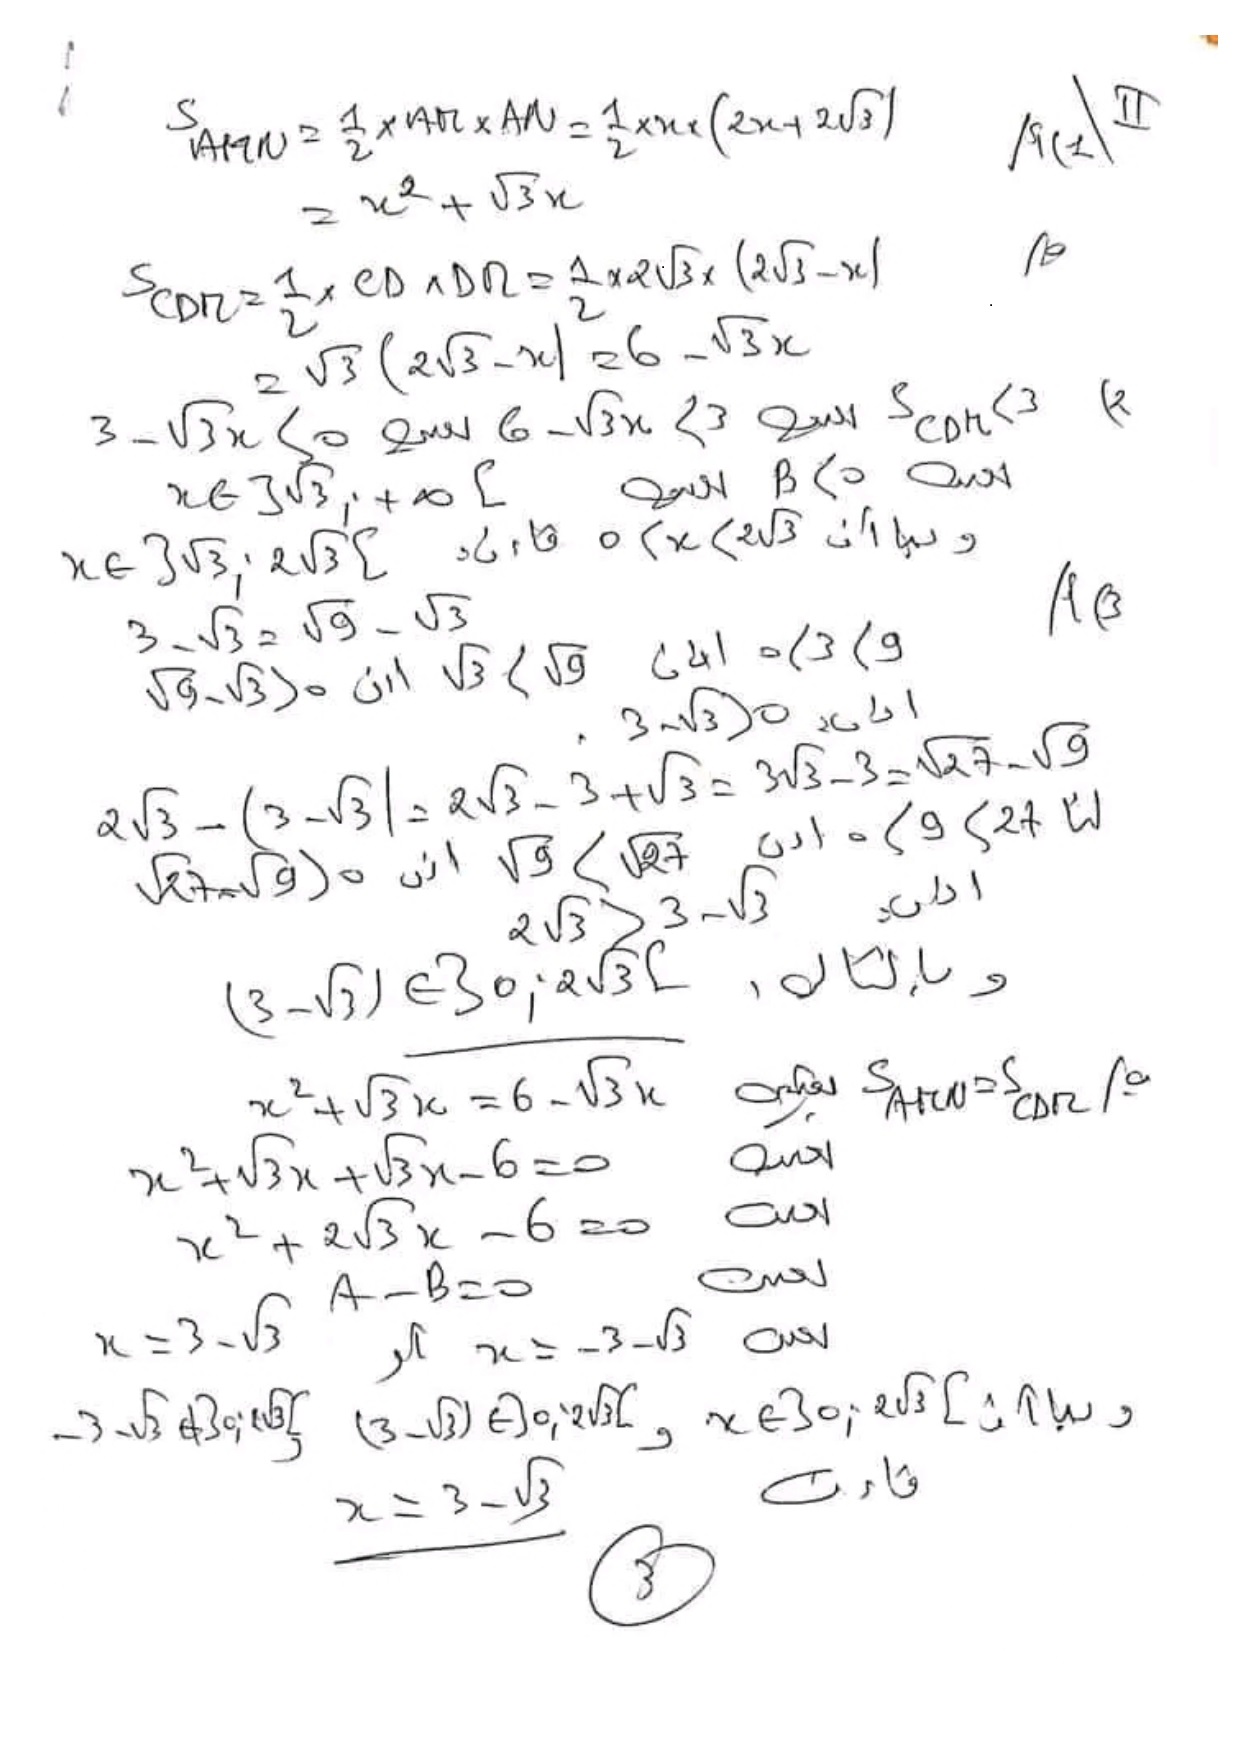 II) 1) أ/ S_AMN = 1/2 × AM × AN = 1/2 × x × (2x + 2√3)
= x² + √3x
ب/ S_CDM = 1/2 × CD × DM = 1/2 × 2√3 × (2√3 - x)
= √3(2√3 - x) = 6 - √3x
2) S_CDM < 3 يعني 6 - √3x < 3 يعني 3 - √3x < 0
يعني B < 0 يعني x ∈ ]√3; +∞[
و بما أن 0 < x < 2√3 فإن x ∈ ]√3; 2√3[
3) أ/
3 - √3 = √9 - √3
0 < 3 < 9 إذن √3 < √9 إذن √9 - √3 > 0
إذن 3 - √3 > 0.
2√3 - (3 - √3) = 2√3 - 3 + √3 = 3√3 - 3 = √27 - √9
لنا 0 < 9 < 27 إذن √9 < √27 إذن √27 - √9 > 0
إذن 2√3 > 3 - √3
و بالتالي (3 - √3) ∈ ]0; 2√3[
ب/ S_AMN = S_CDM يعني x² + √3x = 6 - √3x
يعني x² + √3x + √3x - 6 = 0
يعني x² + 2√3x - 6 = 0
يعني A - B = 0
يعني x = -3 - √3 أو x = 3 - √3
و بما أن x ∈ ]0; 2√3[ و (3 - √3) ∈ ]0; 2√3[ و -3 - √3 ∉ ]0; 2√3[
فإن x = 3 - √3
3